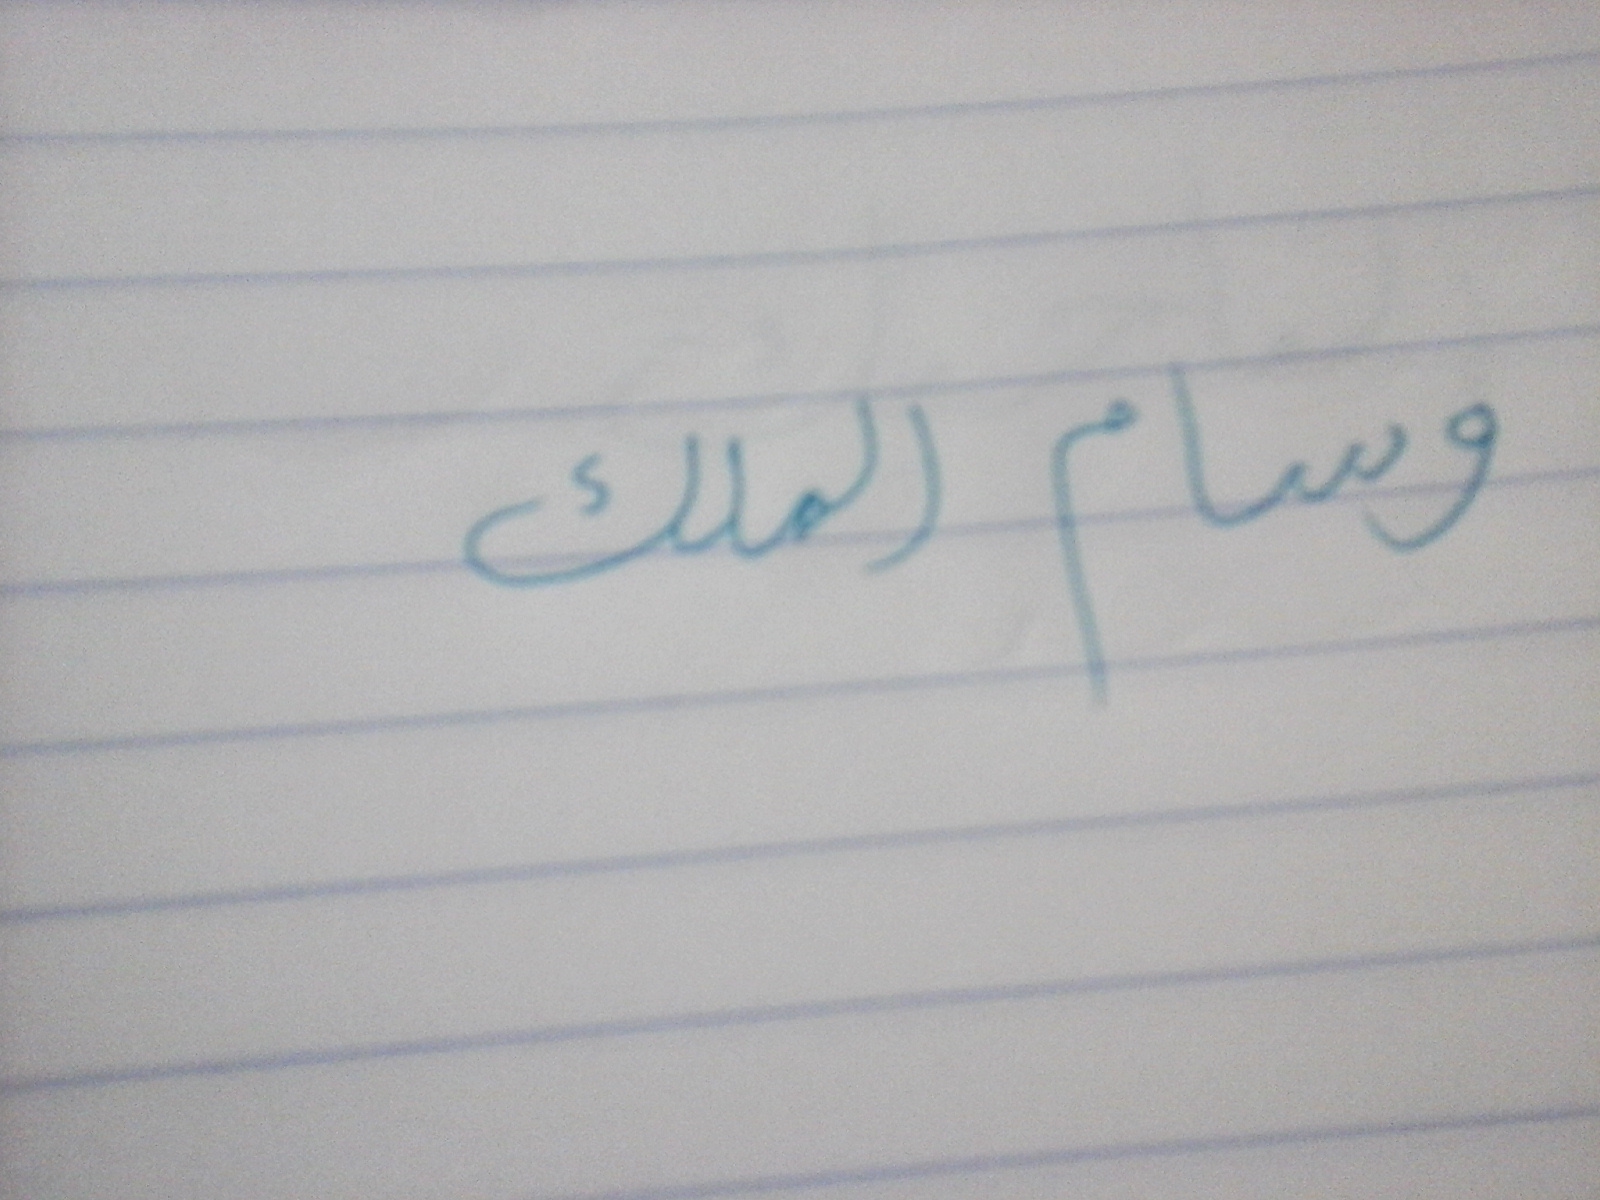 وسام الملك